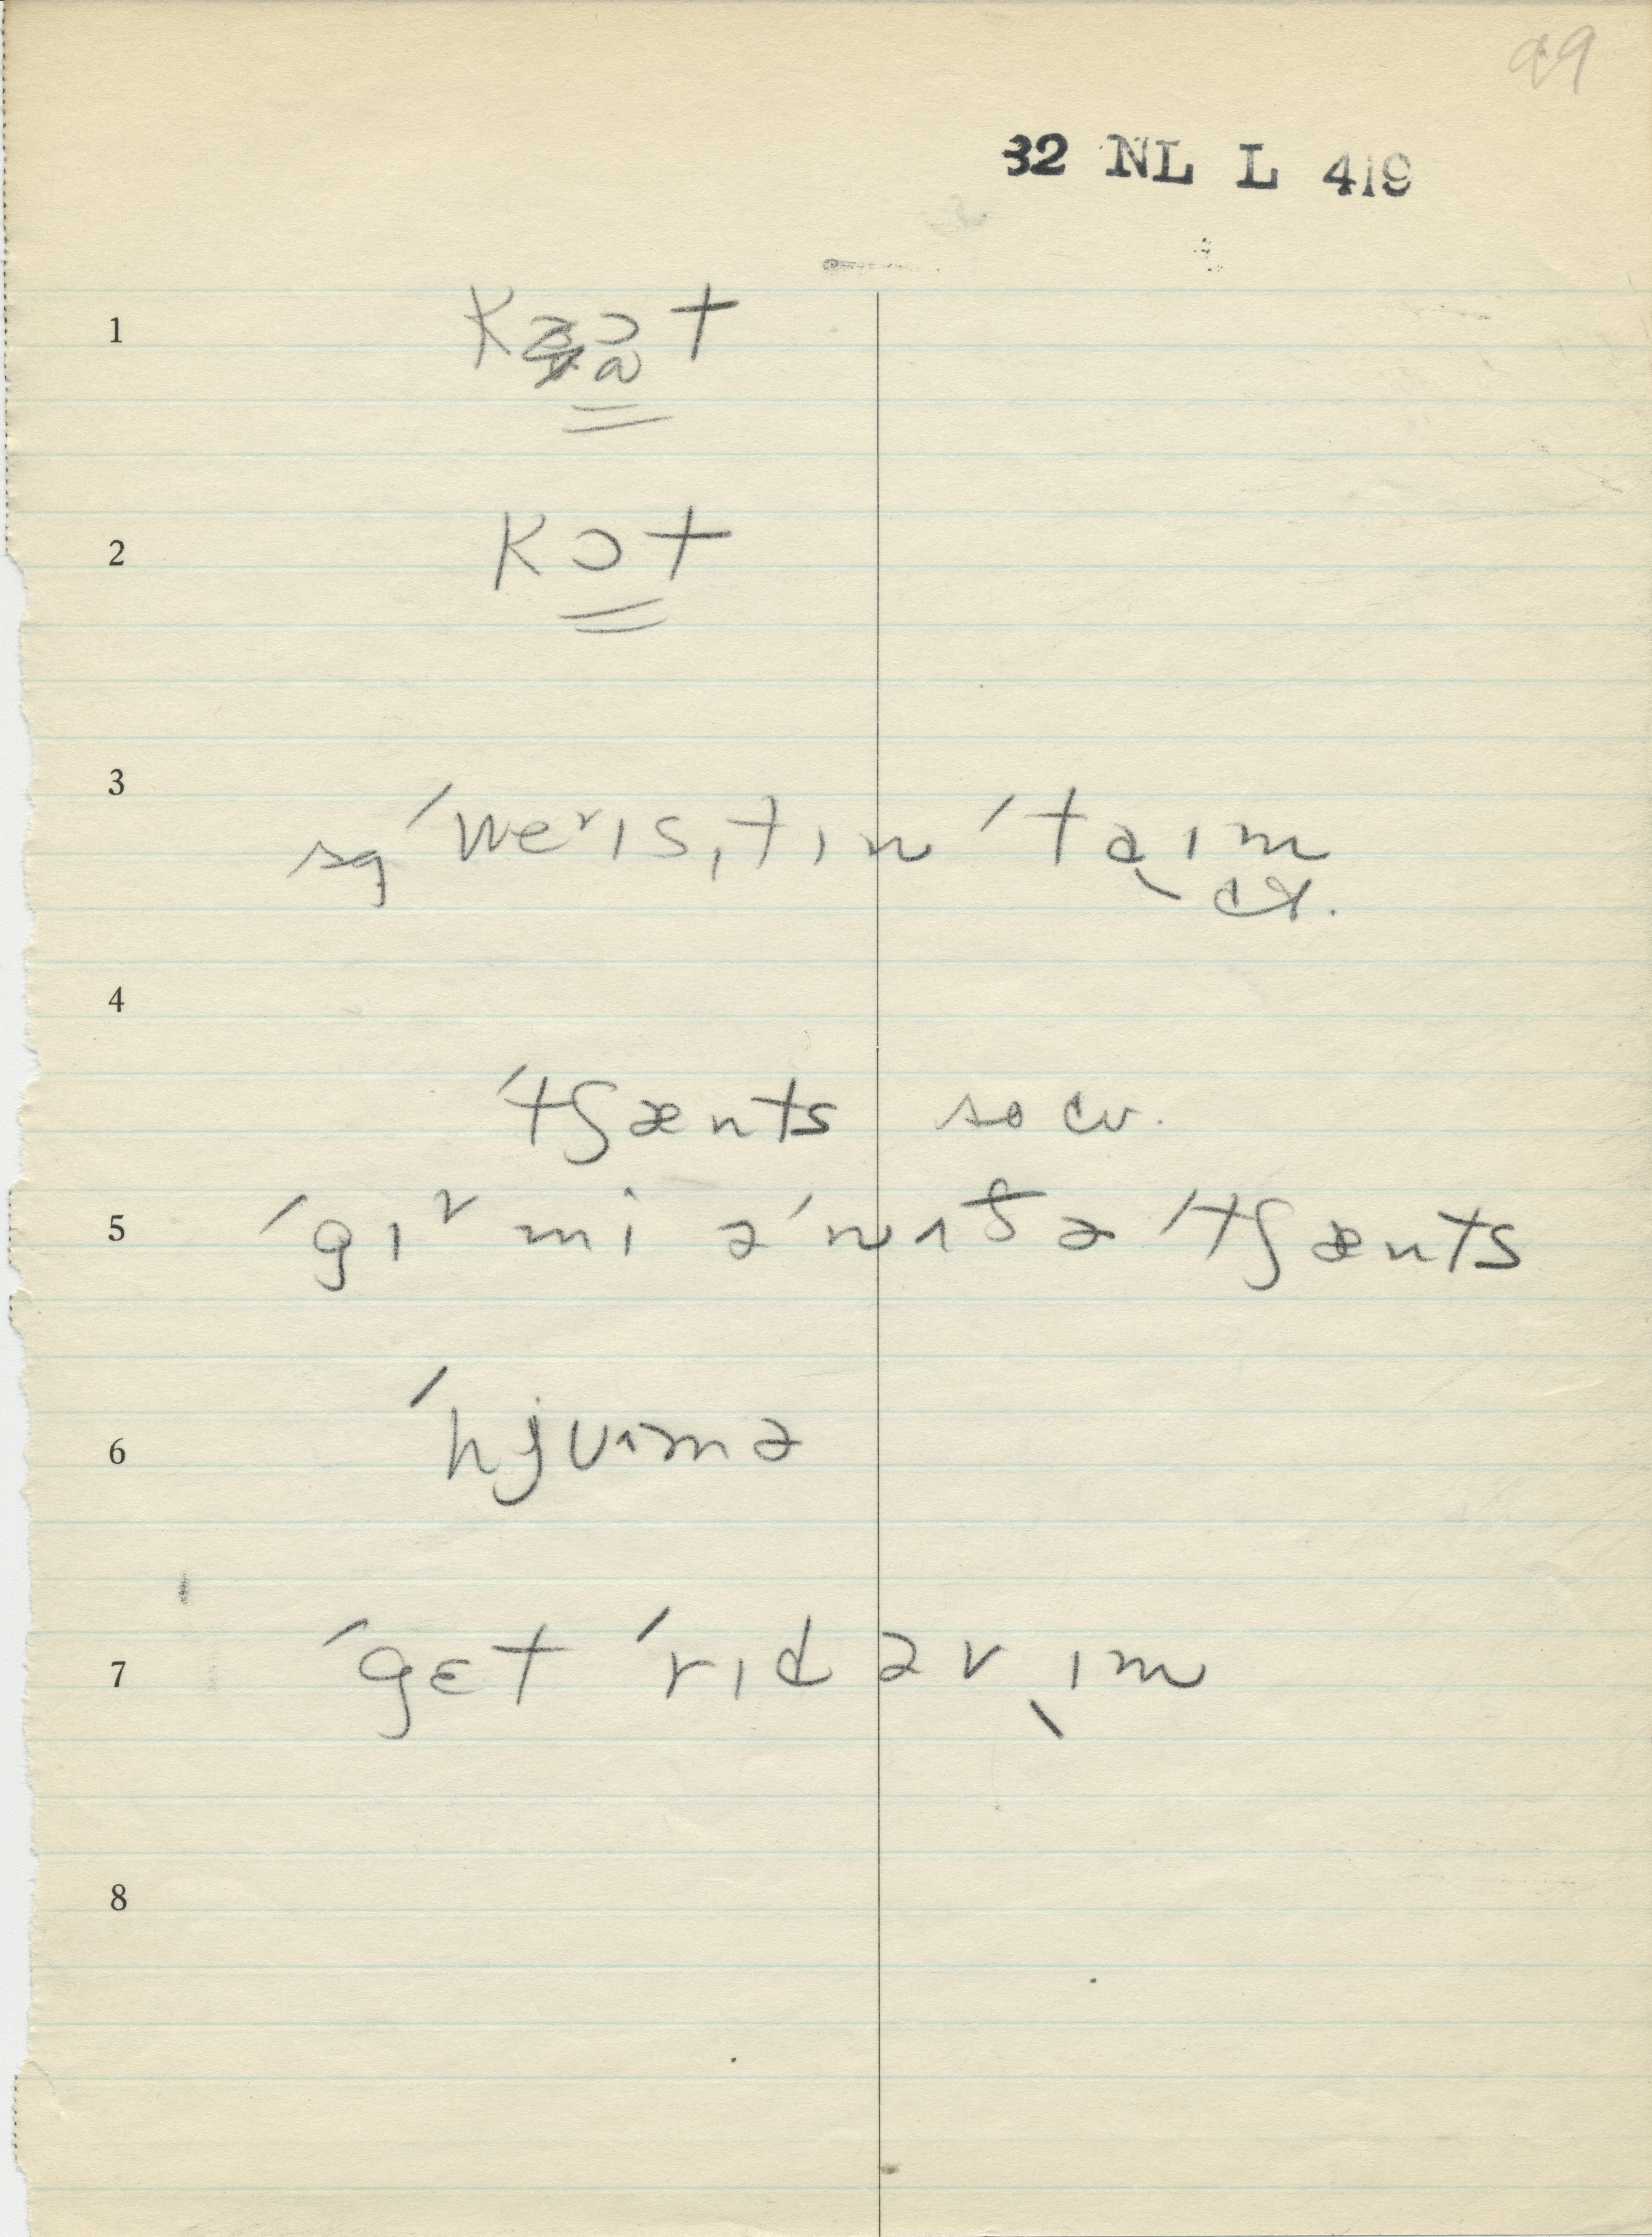 99
32 NL L 419
1 kɔt
ɑ
2 kɔt
3 sq ˈweᵛɪsˌtɪn ˈtaˎɪm
cx.
4
ˈtʃænts so cv.
5 ˈgɪᵛ mi əˈnʌðə ˈtʃænts
6 ˈhjuʌmə
7 ˈgɛt ˈrɪd əvˎɪm
8